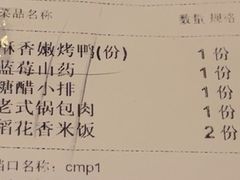 菜品名称 数量 规格
酥香嫩烤鸭(份) 1 份
蓝莓山药 1 份
糖醋小排 1 份
老式锅包肉 1 份
稻花香米饭 2 份
档口名称: cmp1